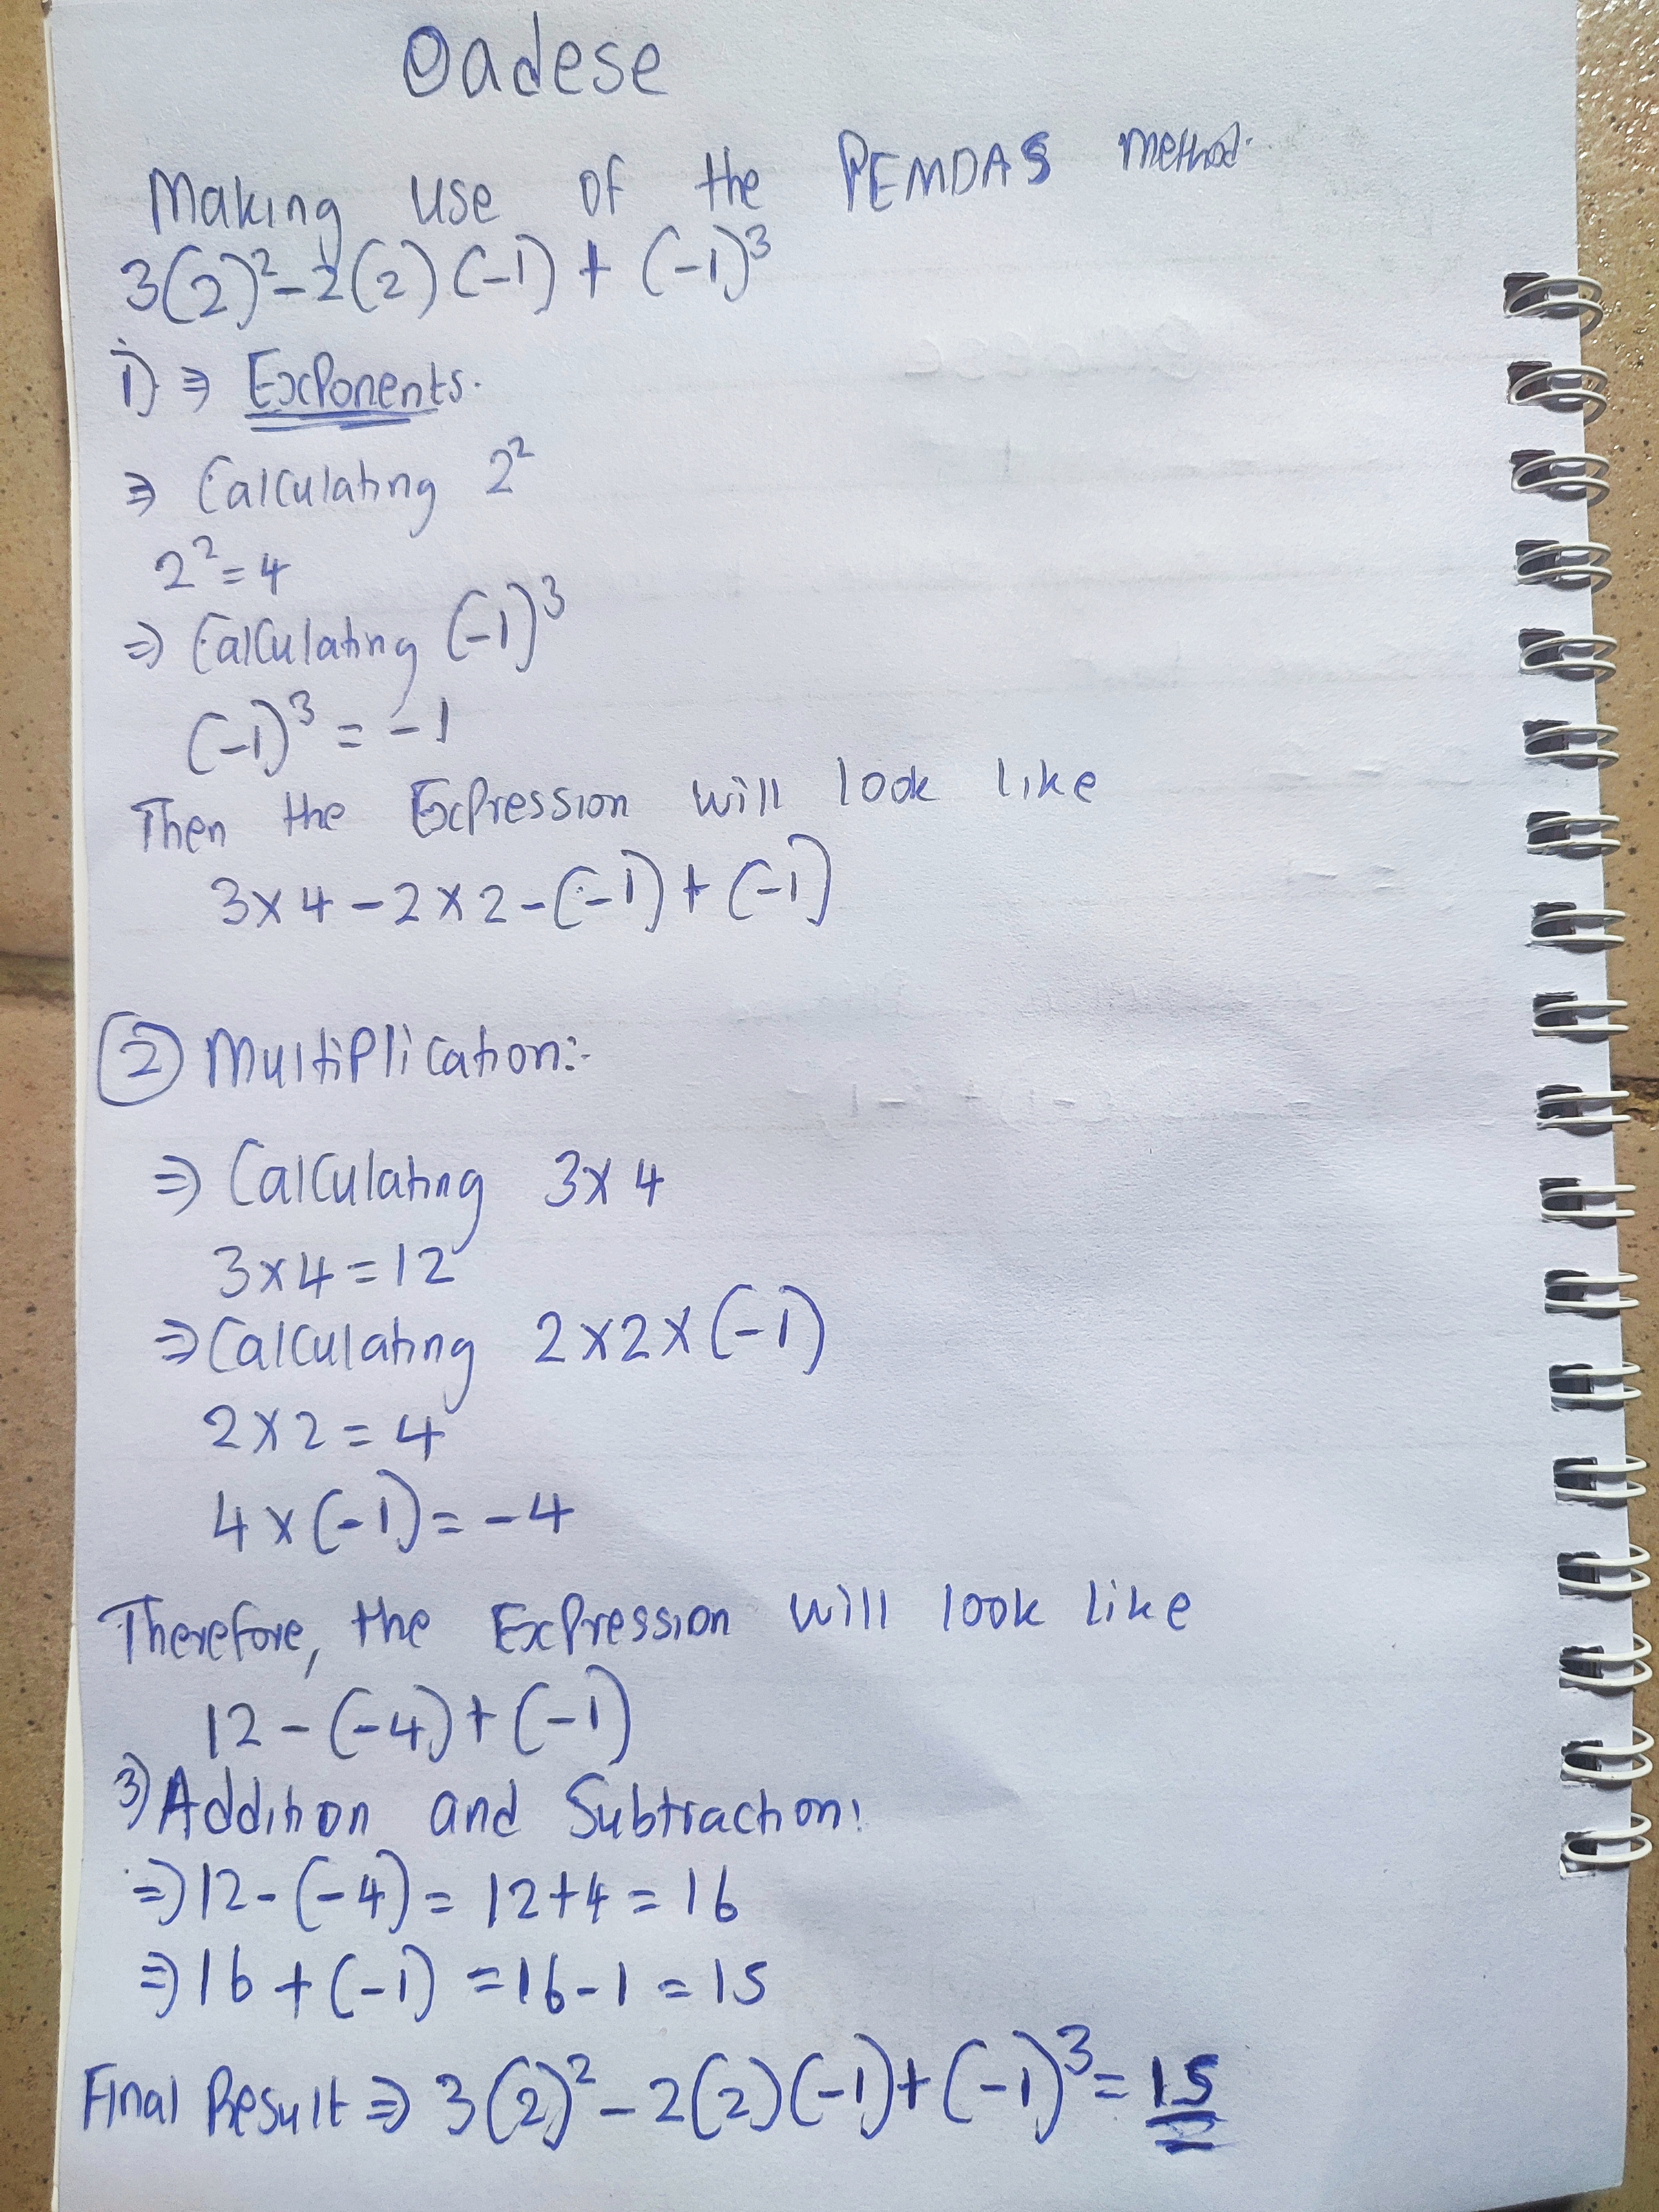 Oadese
Making use of the PEMDAS method.
3(2)²-2(2)(-1)+(-1)³
i) ⇒ Exponents.
⇒ Calculating 2²
2²=4
⇒ Calculating (-1)³
(-1)³ = -1
Then the Expression will look like
3×4-2×2-(-1)+(-1)
(2) Multiplication:-
⇒ Calculating 3×4
3×4=12
⇒ Calculating 2×2×(-1)
2×2=4
4×(-1)=-4
Therefore, the Expression will look like
12-(-4)+(-1)
3) Addition and Subtraction:
⇒ 12-(-4)= 12+4=16
⇒ 16+(-1) =16-1=15
Final Result ⇒ 3(2)²-2(2)(-1)+(-1)³=15